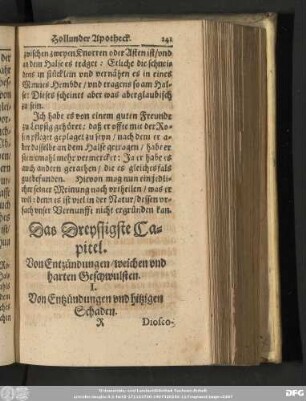 Hollunder Apotheck. 241
zwischen zweyen Knorren oder Ästen ist/vnd
an dem Halse es träget: Etliche die schnei-
den in stücklein vnd vernähen es in eines
Mannes Hembde/vnd tragens so am Hal-
se: Dieses scheinet aber was abergläubisch
zu sein.
Ich habe es von einem guten Freunde
zu Leipzig gehöret: daß er offte mit der Ro-
sen pfleget geplaget zu seyn/nach dem er a-
ber dasselbe an dem Halse getragen/habe er
sie niemahl mehr vermercket: Ja er habe es
auch andern gerathen/die es gleichesfals
gut befunden. Hievon mag nun ein jedli-
cher seiner Meinung nach vrtheilen/was er
wil: denn es ist viel in der Natur/dessen vr-
sach vnser Vernunfft nicht ergründen kan.
Das Dreyssigste Ca-
pitel.
Von Entzündungen/weichen vnd
harten Geschwulsten.
I.
Von Entzündungen vnd hitzigen
Schaden.
R Diosco-